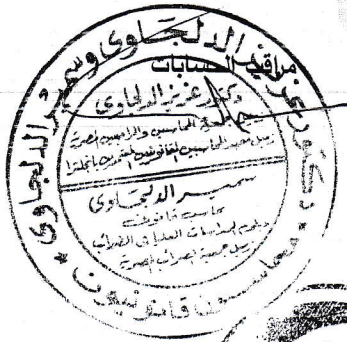 دكتور عزيز الدلجاوى وسمير الدلجاوى
محاسبون قانونيون
مراقبو الحسابات
دكتور عزيز الدلجاوى
جمعية المحاسبين والمراجعين المصرية
زميل معهد المحاسبين القانونيين المعتمدين بانجلترا
سمير الدلجاوى
محاسب قانونى
دبلوم الدراسات العليا فى الضرائب
زميل جمعية الضرائب المصرية